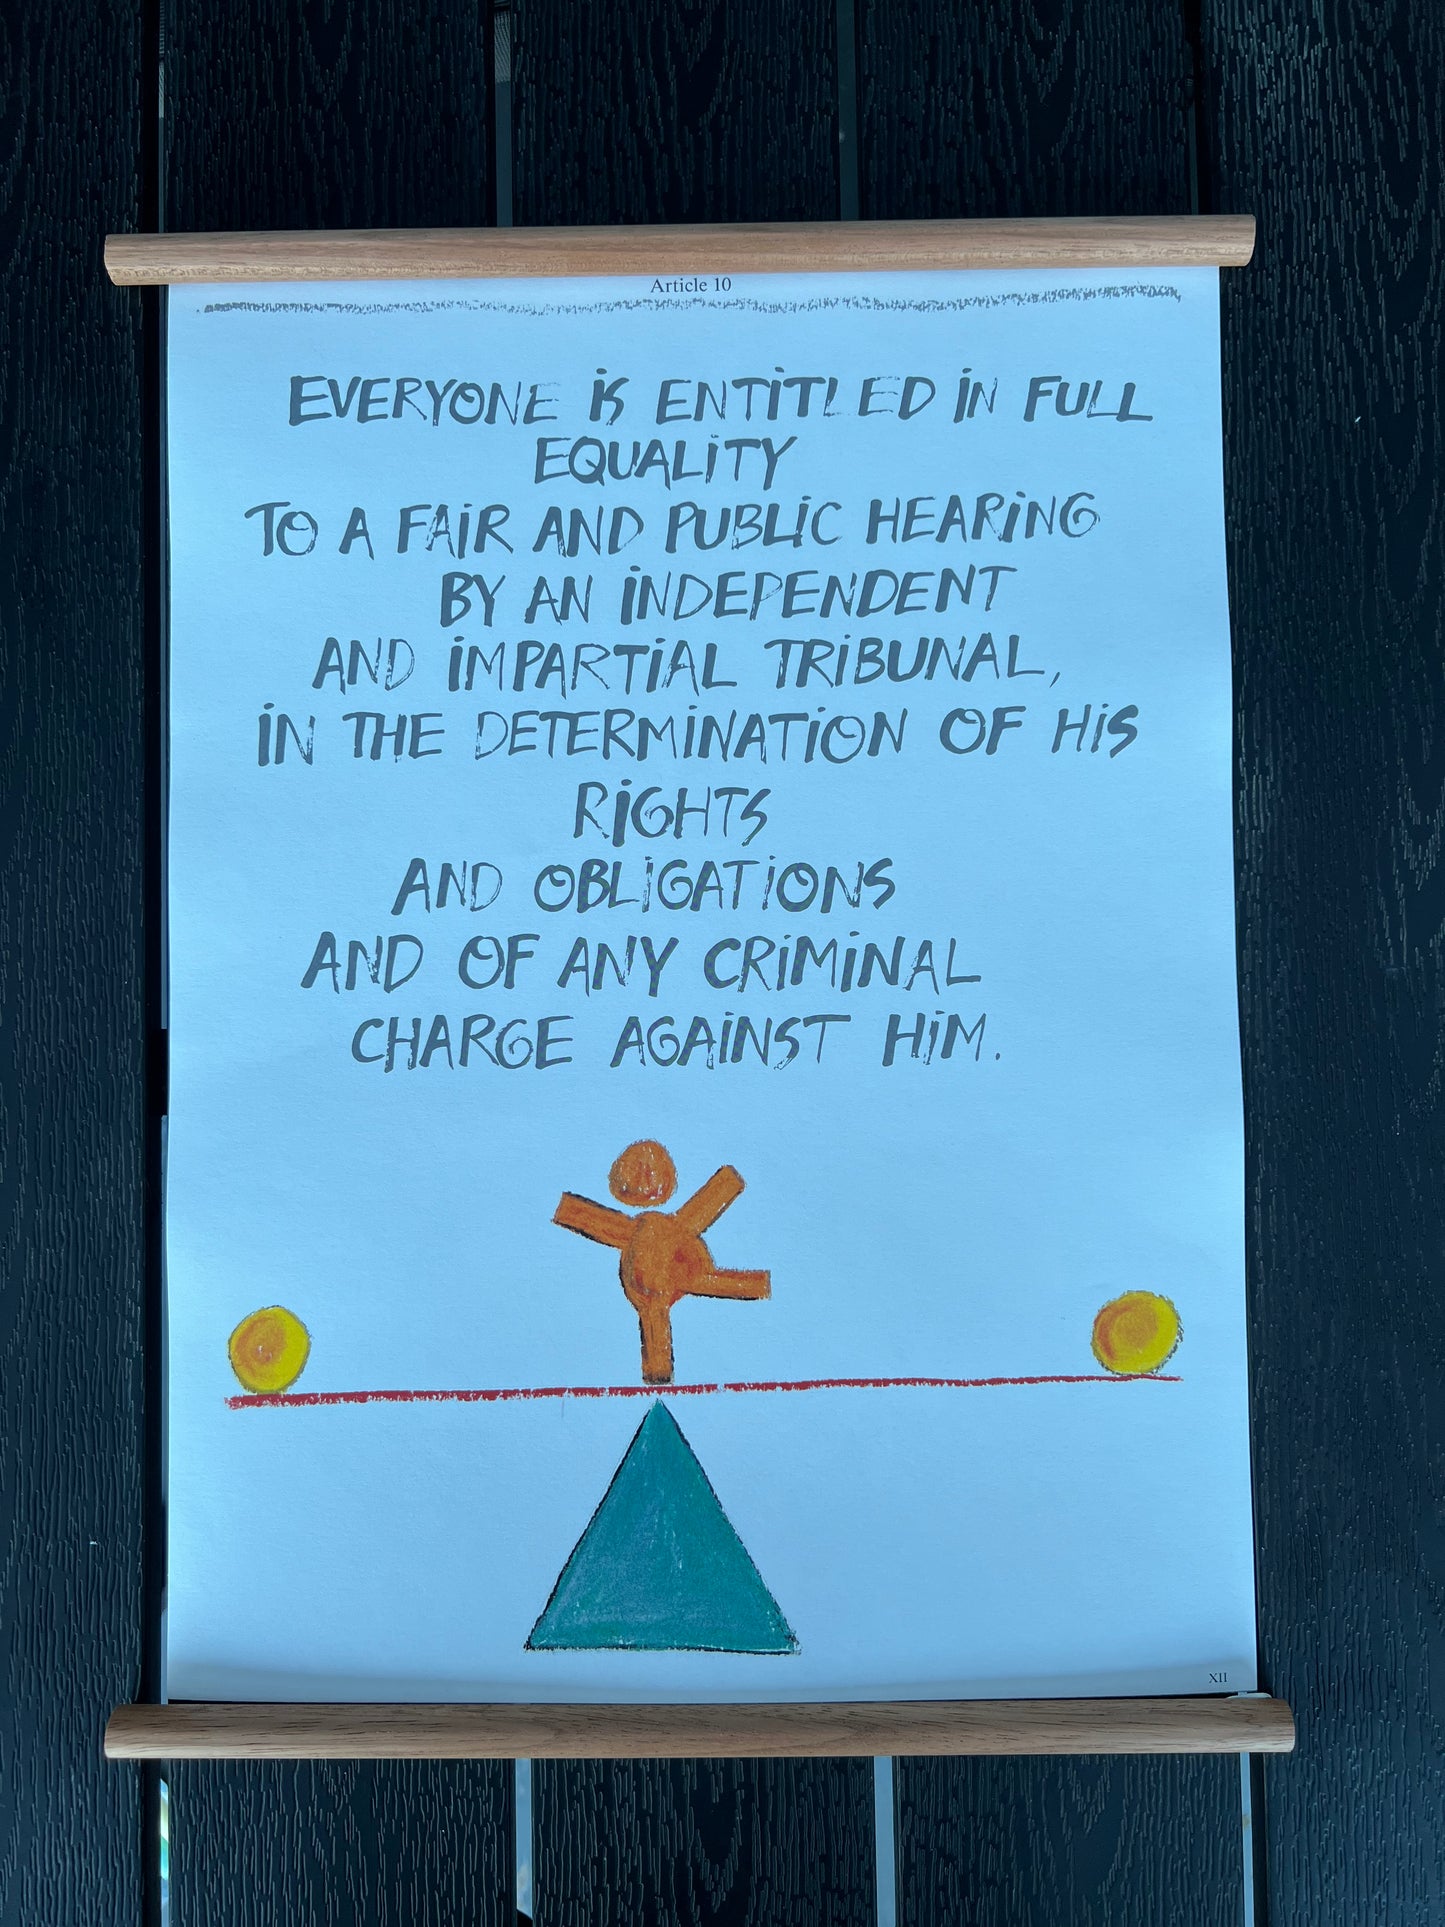 Article 10
EVERYONE iS ENTiTLED iN FULL
EQUALiTY
TO A FAiR AND PUBLiC HEARiNG
BY AN iNDEPENDENT
AND iMPARTiAL TRiBUNAL,
iN THE DETERMiNATiON OF HiS
RiGHTS
AND OBLiGATiONS
AND OF ANY CRiMiNAL
CHARGE AGAiNST HiM.
XII